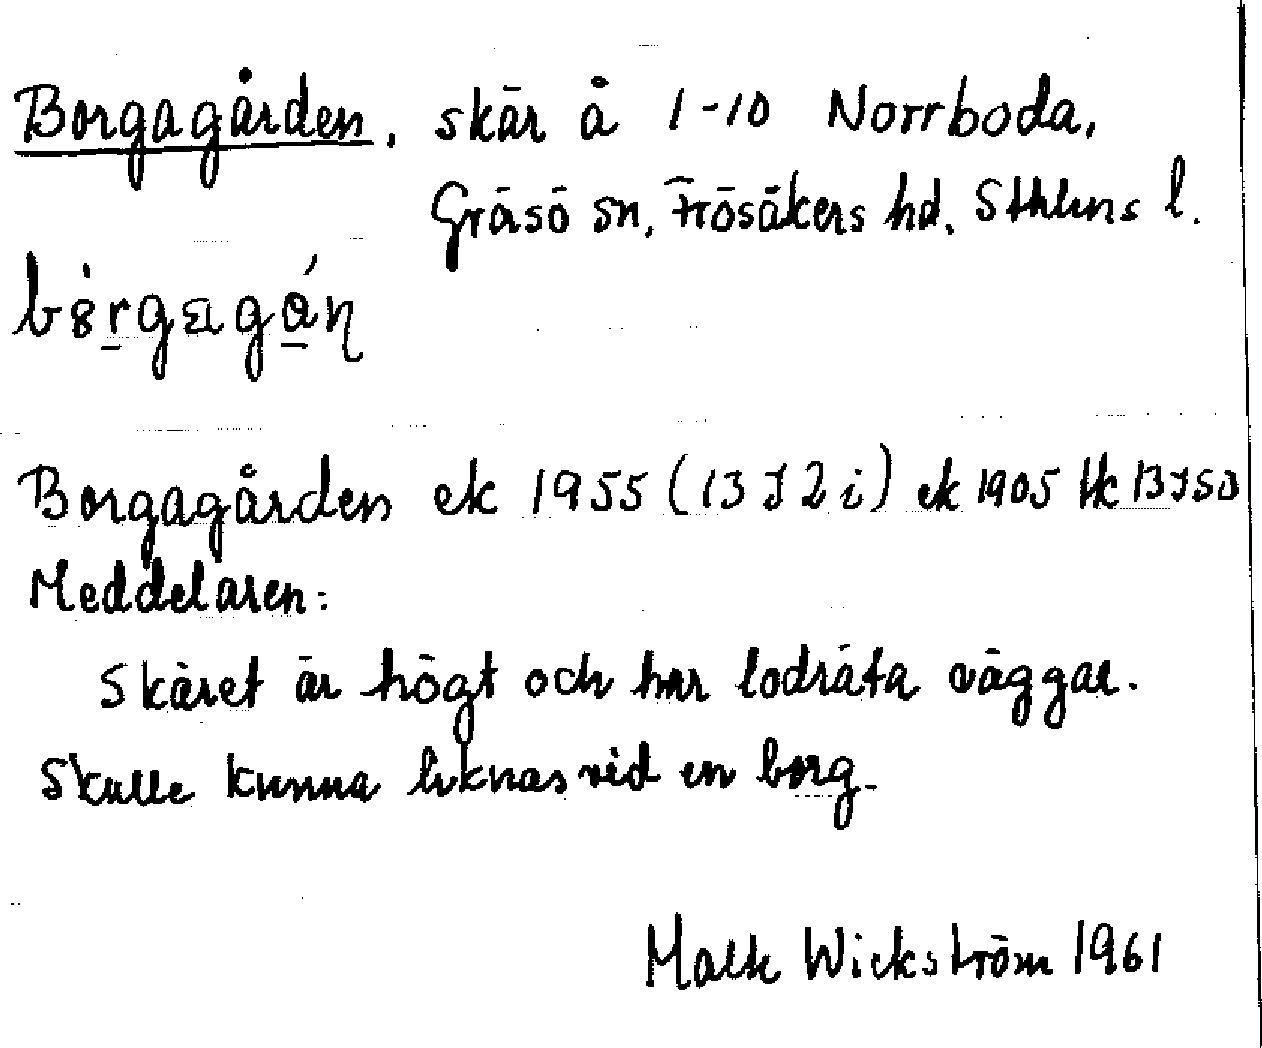 Borgagården, skär å 1-10 Norrboda,
Gräsö sn, Frösåkers hd, Sthlms l.
Borgagården ek 1955 (13 I 2 i) ek 1905 Hk 13 I SO
Meddelaren:
Skäret är högt och har lodräta väggar.
Skulle kunna liknas vid en borg.
Wickström 1961